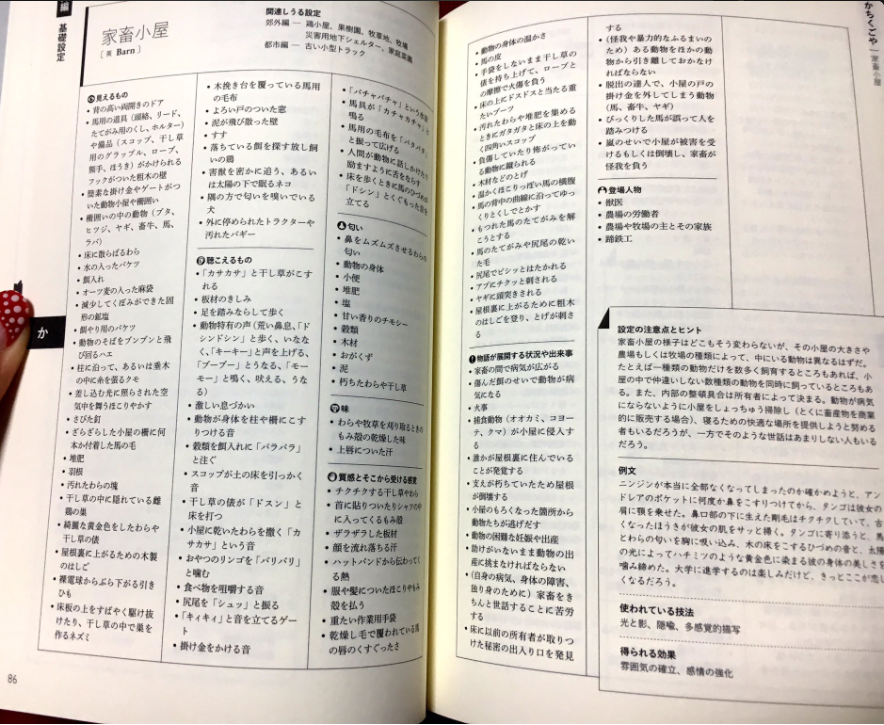 編
基礎設定
家畜小屋
[英 Barn]
関連しうる設定
郊外編 ― 鶏小屋、果樹園、牧草地、牧場
災害用地下シェルター、家庭菜園
都市編 ― 古い小型トラック
見えるもの
• 背の高い両開きのドア
• 馬用の道具（頭絡、リード、
たてがみ用のくし、ホルター）
や備品（スコップ、干し草
用のグラップル、ロープ、
鞍、手、ほうき）がかけられる
フックがついた粗木の壁
• 簡素な掛け金やゲートがつ
いた動物小屋や柵囲い
• 柵囲いの中の動物（ブタ、
ヒツジ、ヤギ、畜牛、馬、
ラバ）
• 床に散らばるわら
• 水の入ったバケツ
• 餌入れ
• オーツ麦の入った麻袋
• 減少してくぼみができた固
形の鉱塩
• 餌やり用のバケツ
• 動物のそばをブンブンと飛
び回るハエ
• 柱に沿って、あるいは垂木
の中に糸を張るクモ
• 差し込む光に照らされた空
気中を舞うほこりやかす
• さびた釘
• ざらざらした小屋の柵に何
本か付着した馬の毛
• 堆肥
• 羽根
• 汚れたわらの塊
• 干し草の中に隠れている雌
鶏の巣
• 綺麗な黄金色をしたわらや
干し草の俵
• 屋根裏に上がるための木製
のはしご
• 裸電球からぶら下がる引き
ひも
• 床板の上をすばやく駆け抜
けたり、干し草の中で巣を
作るネズミ
• 木挽き台を覆っている馬用
の毛布
• よろい戸のついた窓
• 泥が飛び散った壁
• すす
• 落ちている餌を探す放し飼
いの鶏
• 害獣を密かに追う、あるい
は太陽の下で眠るネコ
• 隅の方で匂いを嗅いでいる
犬
• 外に停められたトラクターや
汚れたバギー
聴こえるもの
• 「カサカサ」と干し草がこす
れる
• 板材のきしみ
• 足を踏みならして歩く
• 動物特有の声（荒い鼻息、「ド
シンドシン」と歩く、いなな
く、「キーキー」と声を上げる、
「ブーブー」とうなる、「モー
モー」と鳴く、吠える、うな
る）
• 激しい息づかい
• 動物が身体を柱や柵にこす
りつける音
• 穀類を餌入れに「パラパラ」
と注ぐ
• スコップが土の床を引っかく
音
• 干し草の俵が「ドスン」と
床を打つ
• 小屋に乾いたわらを撒く「カ
サカサ」という音
• おやつのリンゴを「バリバリ」
と噛む
• 食べ物を咀嚼する音
• 尻尾を「シュッ」と振る
• 「キィキィ」と音を立てるゲー
ト
• 掛け金をかける音
• 「パチャパチャ」という水音
• 馬具が「カチャカチャ」と
鳴る
• 馬用の毛布を「バタバタ」
と振って広げる
• 人間が動物に話しかけたり
励ますように舌をならす
• 床を歩くときに馬のひづめが
「ドシン」とくぐもった音を
立てる
匂い
• 鼻をムズムズさせるわらの
匂い
• 動物の身体
• 小便
• 堆肥
• 塩
• 甘い香りのチモシー
• 穀類
• 木材
• おがくず
• 泥
• 朽ちたわらや干し草
味
• わらや牧草を刈り取るときの
もみ殻の乾燥した味
• 上唇についた汗
質感とそこから受ける感覚
• チクチクする干し草やわら
• 首に貼りついたりシャツの中
に入ってくるもみ殻
• ザラザラした板材
• 顔を流れ落ちる汗
• ハットバンドから伝わってく
る熱
• 服や髪についたほこりやもみ
殻を払う
• 重たい作業用手袋
• 乾燥し毛で覆われている馬
の唇のくすぐったさ
か
86
• 動物の身体の温かさ
• 馬の皮
• 手袋をしないまま干し草の
俵を持ち上げて、ロープと
の摩擦で火傷を負う
• 床の上にドスドスと当たる重
たいブーツ
• 汚れたわらや堆肥を集める
ときにガタガタと床の上を動
く四角いスコップ
• 負傷していたり怖がってい
る動物に蹴られる
• 木材などのとげ
• 温かくほこりっぽい馬の横腹
• 馬の背中の曲線に沿ってゆっ
くりとくしでとかす
• もつれた馬のたてがみを解
こうとする
• 馬のたてがみや尻尾の乾い
た毛
• 尻尾でピシッとはたかれる
• アブにチクッと刺される
• ヤギに頭突きされる
• 屋根裏に上がるために粗木
のはしごを登り、とげが刺さ
る
物語が展開する状況や出来事
• 家畜の間で病気が広がる
• 傷んだ餌のせいで動物が病
気になる
• 火事
• 捕食動物（オオカミ、コヨー
テ、クマ）が小屋に侵入す
る
• 誰かが屋根裏に住んでいる
ことが発覚する
• 支えが朽ちていたため屋根
が倒壊する
• 小屋のもろくなった箇所から
動物たちが逃げだす
• 動物の困難な妊娠や出産
• 助けがいないまま動物の出
産に挑まなければならない
• （自身の病気、身体の障害、
独り身のために）家畜をき
ちんと世話することに苦労
する
• 床に以前の所有者が取りつ
けた秘密の出入り口を発見
する
• （怪我や暴力的なふるまいの
ため）ある動物をほかの動
物から引き離しておかなけ
ればならない
• 脱出の達人で、小屋の戸の
掛け金を外してしまう動物
（馬、畜牛、ヤギ）
• びっくりした馬が誤って人を
踏みつける
• 嵐のせいで小屋が被害を受
けるもしくは倒壊し、家畜が
怪我を負う
登場人物
• 獣医
• 農場の労働者
• 農場や牧場の主とその家族
• 蹄鉄工
設定の注意点とヒント
家畜小屋の様子はどこもそう変わらないが、その小屋の大きさや
農場もしくは牧場の種類によって、中にいる動物は異なるはずだ。
たとえば一種類の動物だけを数多く飼育するところもあれば、小
屋の中で仲違いしない数種類の動物を同時に飼っているところもあ
る。また、内部の整頓具合は所有者によって決まる。動物が病気
にならないように小屋をしょっちゅう掃除し（とくに畜産物を商業
的に販売する場合）、寝るための快適な場所を提供しようと努める
者もいるだろうが、一方でそのような世話はあまりしない人もいる
だろう。
例文
ニンジンが本当に全部なくなってしまったのか確かめようと、アン
ドレアのポケットに何度か鼻をこすりつけてから、タンゴは彼女の
肩に顎を乗せた。鼻口部の下に生えた剛毛はチクチクしていて、古
くなったほうきが彼女の肌をサッと掃く。タンゴに寄り添うと、馬
とわらの匂いを胸に吸い込み、木の床をこするひづめの音と、太陽
の光によってハチミツのような黄金色に染まる彼の身体の美しさを
噛み締めた。大学に進学するのは楽しみだけど、きっとここが恋し
くなるだろう。
使われている技法
光と影、隠喩、多感覚的描写
得られる効果
雰囲気の確立、感情の強化
かちくごや｜家畜小屋